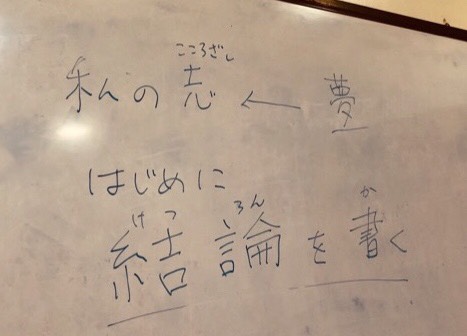 こころざし
私の志 ← 夢
はじめに
けつ ろん か
結論を書く